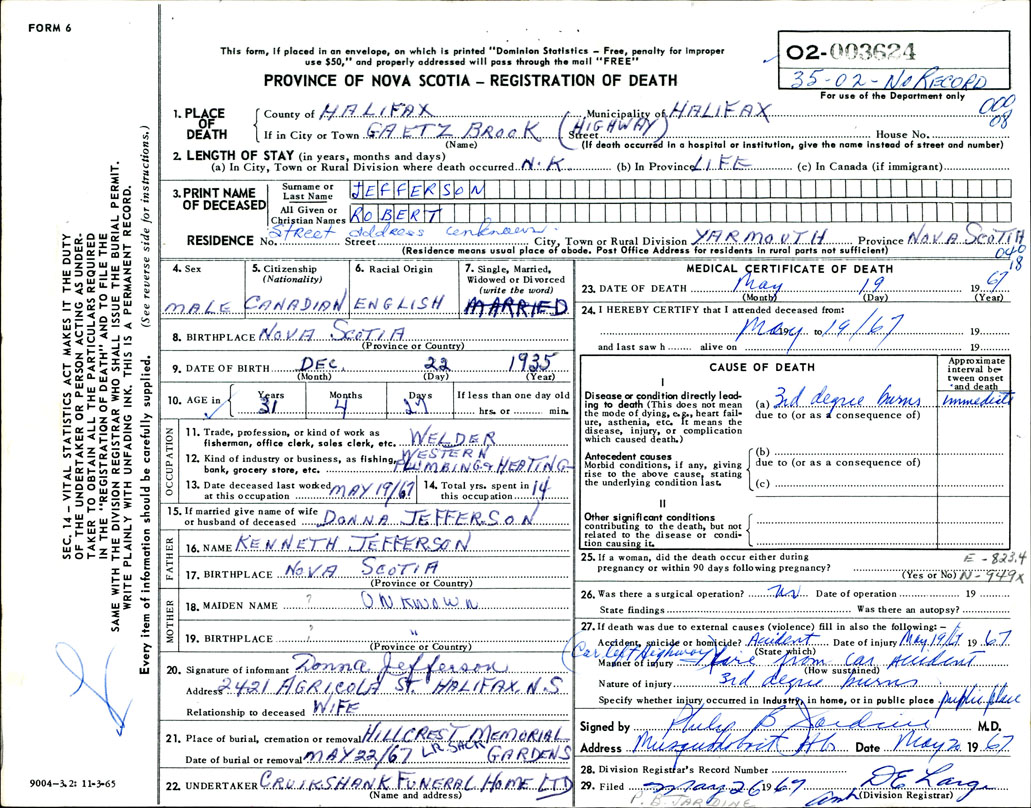 FORM 6
This form, if placed in an envelope, on which is printed "Dominion Statistics – Free, penalty for improper
use $50," and properly addressed will pass through the mail "FREE"
PROVINCE OF NOVA SCOTIA – REGISTRATION OF DEATH
02-003624
35-02-NO RECORD
For use of the Department only
000
08
SEC. 14 – VITAL STATISTICS ACT MAKES IT THE DUTY
OF THE UNDERTAKER OR PERSON ACTING AS UNDER-
TAKER TO OBTAIN ALL THE PARTICULARS REQUIRED
IN THE "REGISTRATION OF DEATH" AND TO FILE THE
SAME WITH THE DIVISION REGISTRAR WHO SHALL ISSUE THE BURIAL PERMIT.
WRITE PLAINLY WITH UNFADING INK. THIS IS A PERMANENT RECORD.
Every item of information should be carefully supplied. (See reverse side for instructions.)
1. PLACE OF DEATH
County of HALIFAX Municipality of HALIFAX
If in City or Town GAETZ BROOK (HIGHWAY) Street House No.
(Name) (If death occurred in a hospital or institution, give the name instead of street and number)
2. LENGTH OF STAY (in years, months and days)
(a) In City, Town or Rural Division where death occurred N.K (b) In Province LIFE (c) In Canada (if immigrant)
3. PRINT NAME OF DECEASED
Surname or Last Name JEFFERSON
All Given or Christian Names ROBERT
Street address unknown
RESIDENCE No. Street City, Town or Rural Division YARMOUTH Province NOVA SCOTIA
(Residence means usual place of abode. Post Office Address for residents in rural parts not sufficient)
040
18
4. Sex 5. Citizenship (Nationality) 6. Racial Origin 7. Single, Married, Widowed or Divorced (write the word)
MALE CANADIAN ENGLISH MARRIED
8. BIRTHPLACE NOVA SCOTIA
(Province or Country)
9. DATE OF BIRTH DEC. 22 1935
(Month) (Day) (Year)
10. AGE in Years Months Days If less than one day old
31 4 27 hrs. or min.
OCCUPATION
11. Trade, profession, or kind of work as fisherman, office clerk, sales clerk, etc. WELDER
12. Kind of industry or business, as fishing, bank, grocery store, etc. WESTERN PLUMBING & HEATING
13. Date deceased last worked at this occupation MAY 19/67 14. Total yrs. spent in this occupation 14
15. If married give name of wife or husband of deceased DONNA JEFFERSON
FATHER
16. NAME KENNETH JEFFERSON
17. BIRTHPLACE NOVA SCOTIA
(Province or Country)
MOTHER
18. MAIDEN NAME ? UNKNOWN
19. BIRTHPLACE ? "
(Province or Country)
20. Signature of informant Donna Jefferson
Address 2421 AGRICOLA ST. HALIFAX N.S
Relationship to deceased WIFE
21. Place of burial, cremation or removal HILLCREST MEMORIAL GARDENS
Date of burial or removal MAY 22/67 LR. SACK.
22. UNDERTAKER CRUIKSHANK FUNERAL HOME LTD
(Name and address)
9004–3.2: 11-3-65
MEDICAL CERTIFICATE OF DEATH
23. DATE OF DEATH May 19 1967
(Month) (Day) (Year)
24. I HEREBY CERTIFY that I attended deceased from:
May 19 to 19/67 19
and last saw h alive on 19
CAUSE OF DEATH
Approximate interval between onset and death
I
Disease or condition directly leading to death (This does not mean the mode of dying, e.g., heart failure, asthenia, etc. It means the disease, injury, or complication which caused death.)
(a) 3rd degree burns immediate
due to (or as a consequence of)
Antecedent causes
Morbid conditions, if any, giving rise to the above cause, stating the underlying condition last.
(b)
due to (or as a consequence of)
(c)
II
Other significant conditions contributing to the death, but not related to the disease or condition causing it.
25. If a woman, did the death occur either during pregnancy or within 90 days following pregnancy?
(Yes or No)
E - 823.4
N - 949x
26. Was there a surgical operation? no Date of operation 19
State findings Was there an autopsy?
27. If death was due to external causes (violence) fill in also the following: –
Accident, suicide or homicide? Accident Date of injury May 19/67 1967
(State which)
(Car left Highway)
Manner of injury fire from car accident
(How sustained)
Nature of injury 3rd degree burns
Specify whether injury occurred in Industry, in home, or in public place public place
Signed by Philip B Jardine M.D.
Address Musquodoboit Hb. Date May 20 1967
28. Division Registrar's Record Number
29. Filed May 26 1967 D E Large
P. B. JARDINE (Division Registrar)